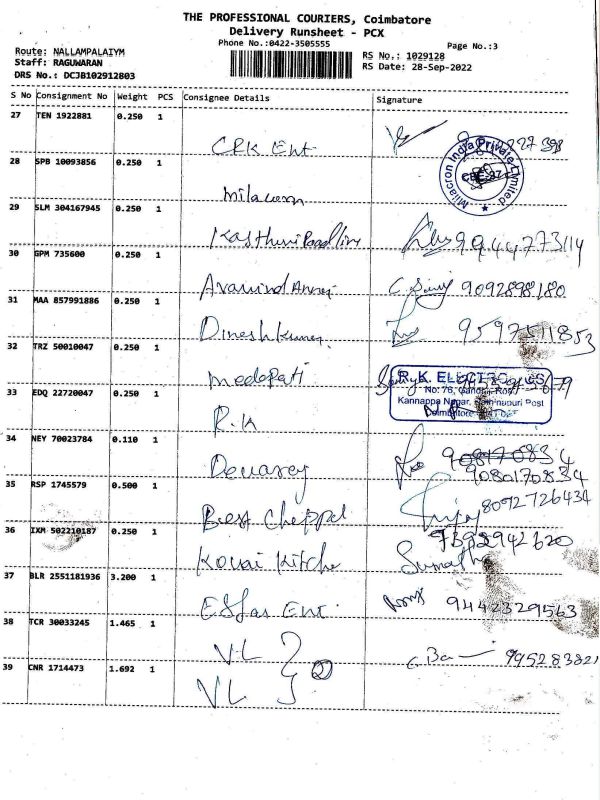 THE PROFESSIONAL COURIERS, Coimbatore
Delivery Runsheet - PCX
Phone No.:0422-3505555
Page No.:3
Route: NALLAMPALAIYM
Staff: RAGUWARAN
DRS No.: DCJB102912803
RS No.: 1029128
RS Date: 28-Sep-2022
S No Consignment No Weight PCS Consignee Details Signature
27 TEN 1922881 0.250 1
CRK Ent
28 SPB 10093856 0.250 1
Milacron
Milacron India Private Limited
29 SLM 304167945 0.250 1
9944773114
30 GPM 735600 0.250 1
9092898180
31 MAA 857991886 0.250 1
Dineshkumar
32 TRZ 50010047 0.250 1
Medopati
R.K ELECTRO
No: 76,
Kannappa Nagar, Post
33 EDQ 22720047 0.250 1
R.K
34 NEY 70023784 0.110 1
9080170834
35 RSP 1745579 0.500 1
Best Cheppal
8092726434
36 IXM 502210187 0.250 1
Kovai Kitche
7392942620
37 BLR 2551181936 3.200 1
Ent.
9442329563
38 TCR 30033245 1.465 1
V.L
39 CNR 1714473 1.692 1
V L
2
995283821